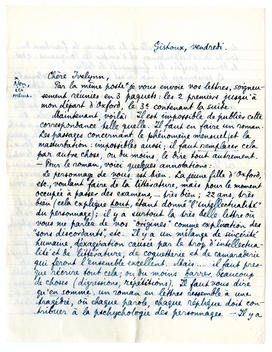 Gistoux, vendredi.
Non,
ici
même.
Chère Ivelynn,
Par la même poste je vous envoie vos lettres, soigneu-
sement réunies en 3 paquets: les 2 premiers jusqu'à
mon départ d'Oxford, le 3e contenant la suite.
Maintenant, voilà: Il est impossible de publier cette
correspondance telle quelle. Il faut en faire un roman.
Les passages concernant le phénomène mensuel, et la
masturbation: impossibles aussi; il faut remplacer cela
par autre chose, ou du moins, le dire tout autrement.
- Pour le roman, voici quelques annotations:
Le personnage de vous est bien. La jeune fille d'Oxford,
etc, voulant faire de la littérature, mais pour le moment
occupée à passer des examens, très bien; 22 ans, très
bien (cela explique tout, étant donné l'"intellectualité"
du personnage); il y a surtout la très belle lettre où
vous me parlez de vos "origines" comme explication des
"sons discordants", etc. Il y a un mélange de sincérité
humaine, d'exagération causée par le trop d'intellectua-
lité et de littérature, de coquetterie et de camaraderie
qui feront l'ensemble excellent. Mais... il faut pres-
que récrire tout cela; ou du moins barrer beaucoup
de choses (digressions, répétitions). Il faut vous dire
qu'en somme, un roman en lettres ressemble à une
tragédie, où chaque parole, chaque réplique doit con-
tribuer à la psychologie des personnages. - Il y a